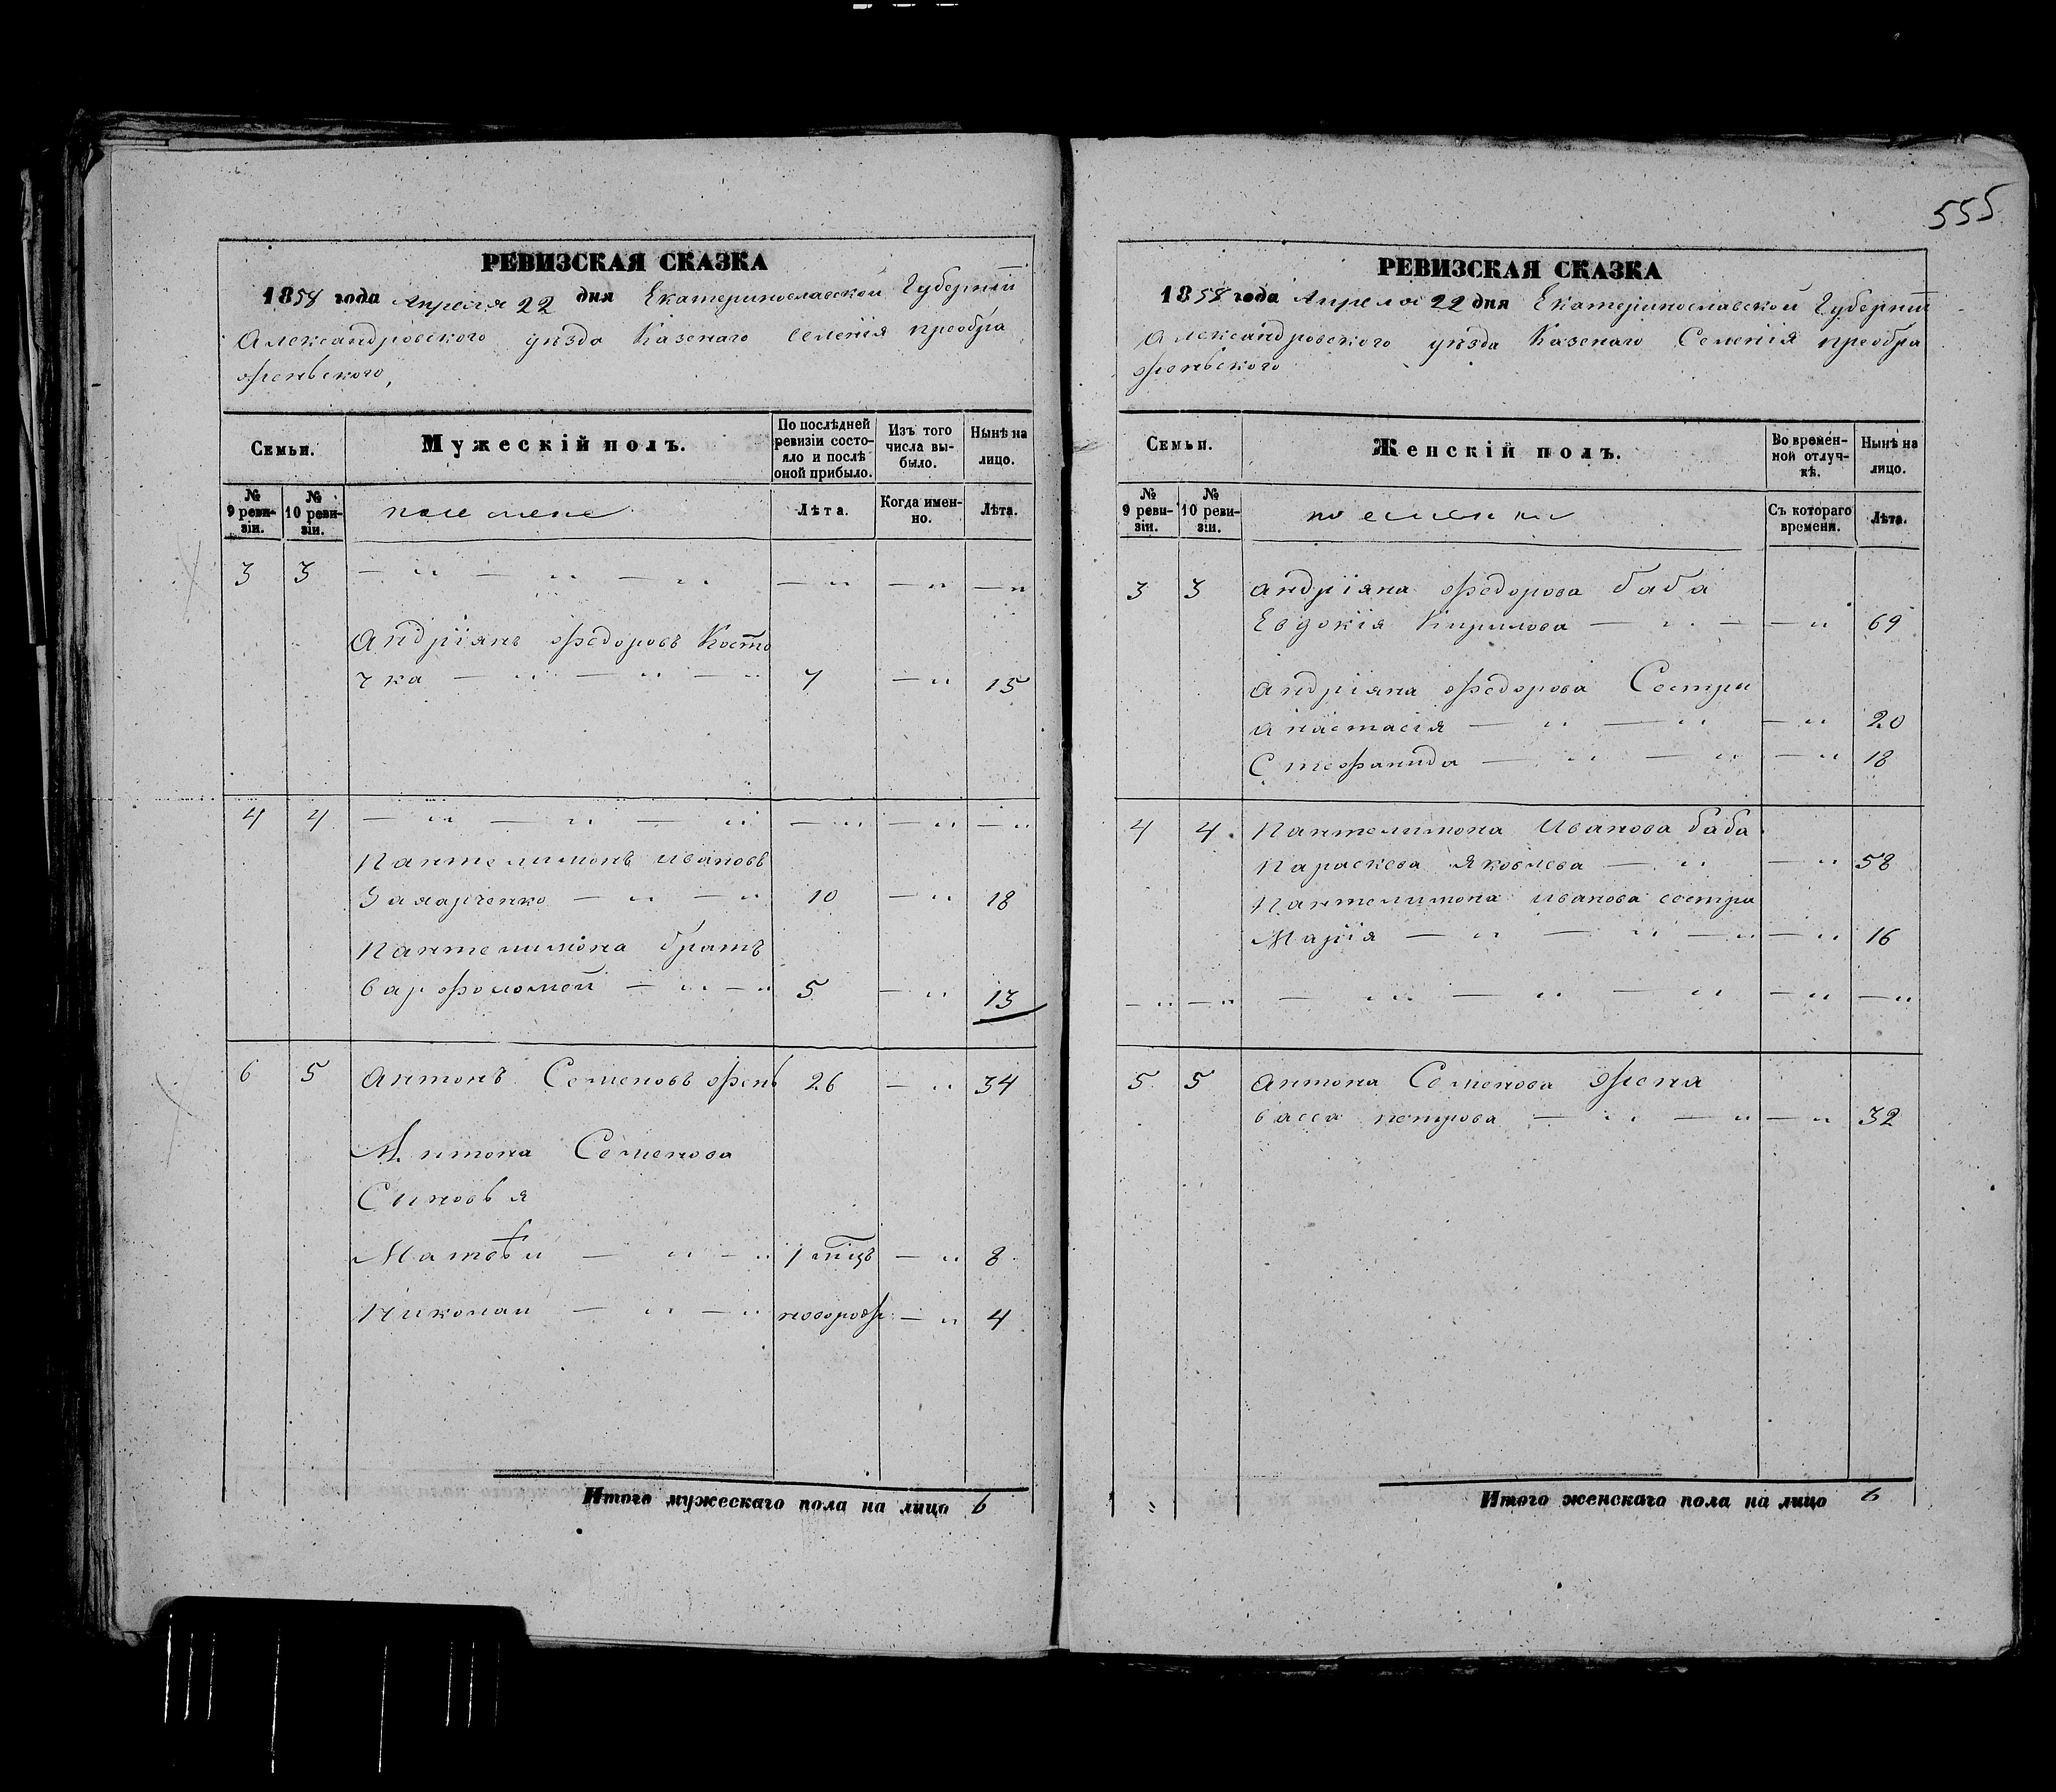 555
РЕВИЗСКАЯ СКАЗКА
1858 года Апреля 22 дня Екатеринославской Губернии
Александровского уезда Казенаго Селения преобра
женьского,
Семьи.
Мужескій полъ.
По послѣдней ревизіи состояло и послѣ оной прибыло.
Изъ того числа выбыло.
Нынѣ на лицо.
№ 9 ревизіи.
№ 10 ревизіи.
Лѣта.
Когда именно.
Лѣта.
3 3 — " — " — " — " — " — "
Андріянъ Федоровъ Косто
чка — " — " — " 7 — " 15
4 4 — " — " — " — " — " — "
Пантелимонъ Ивановъ
— " — " 10 — " 18
Пантелимона братъ
Варфоломей — " — " 5 — " 13
6 5 Антонъ Семеновъ 26 — " 34
Антона Семенова
Синовья
Матвѣй — " — " 1 мцъ — " 8
Николай — " — "новорож — " 4
Итого мужескаго пола на лицо 6
РЕВИЗСКАЯ СКАЗКА
1858 года Апреля 22 дня Екатеринославской Губернии
Александровского уезда Казенаго Селенія преобра
женьского
Семьи.
Женскій полъ.
Во временной отлучкѣ.
Нынѣ на лицо.
№ 9 ревизіи.
№ 10 ревизіи.
Съ котораго времени.
Лѣта.
3 3 Андріяна Федорова баба
Евдокія Кирилова — " — — " 69
Андріяна Федорова Сестри
Анастасія — " — " — " 20
Стефанида — " — " — " 18
4 4 Пантелимона Иванова баба
Параскева Яковлева — " — " 58
Пантелимона Иванова сестра
Марія — " — " — " — " 16
— " — " — " — " — " — " — "
5 5 Антона Семенова жена
Васса петрова — " — " — " 32
Итого женскаго пола на лицо 6